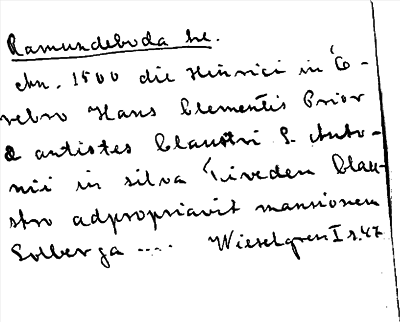 Ramundeboda hd.
An. 1500 die Henrici in Ö-
rebro Hans Clementis Prior
& antistes Claustri S. Anto-
nii in silva Tiveden Clau-
stro adpropriavit mansionem
Solberga .... Wieselgren I s. 47